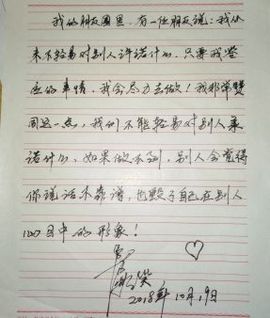 我的朋友圈里,有一位朋友说:我从
来不轻易对别人许诺什么,只要我答
应的事情,我会尽力去做!我非常赞
同这一点,我们不能轻易对别人承
诺什么,如果做不到,别人会觉得
你说话不靠谱,也毁了自己在别人
心目中的形象!
2018年10月19日